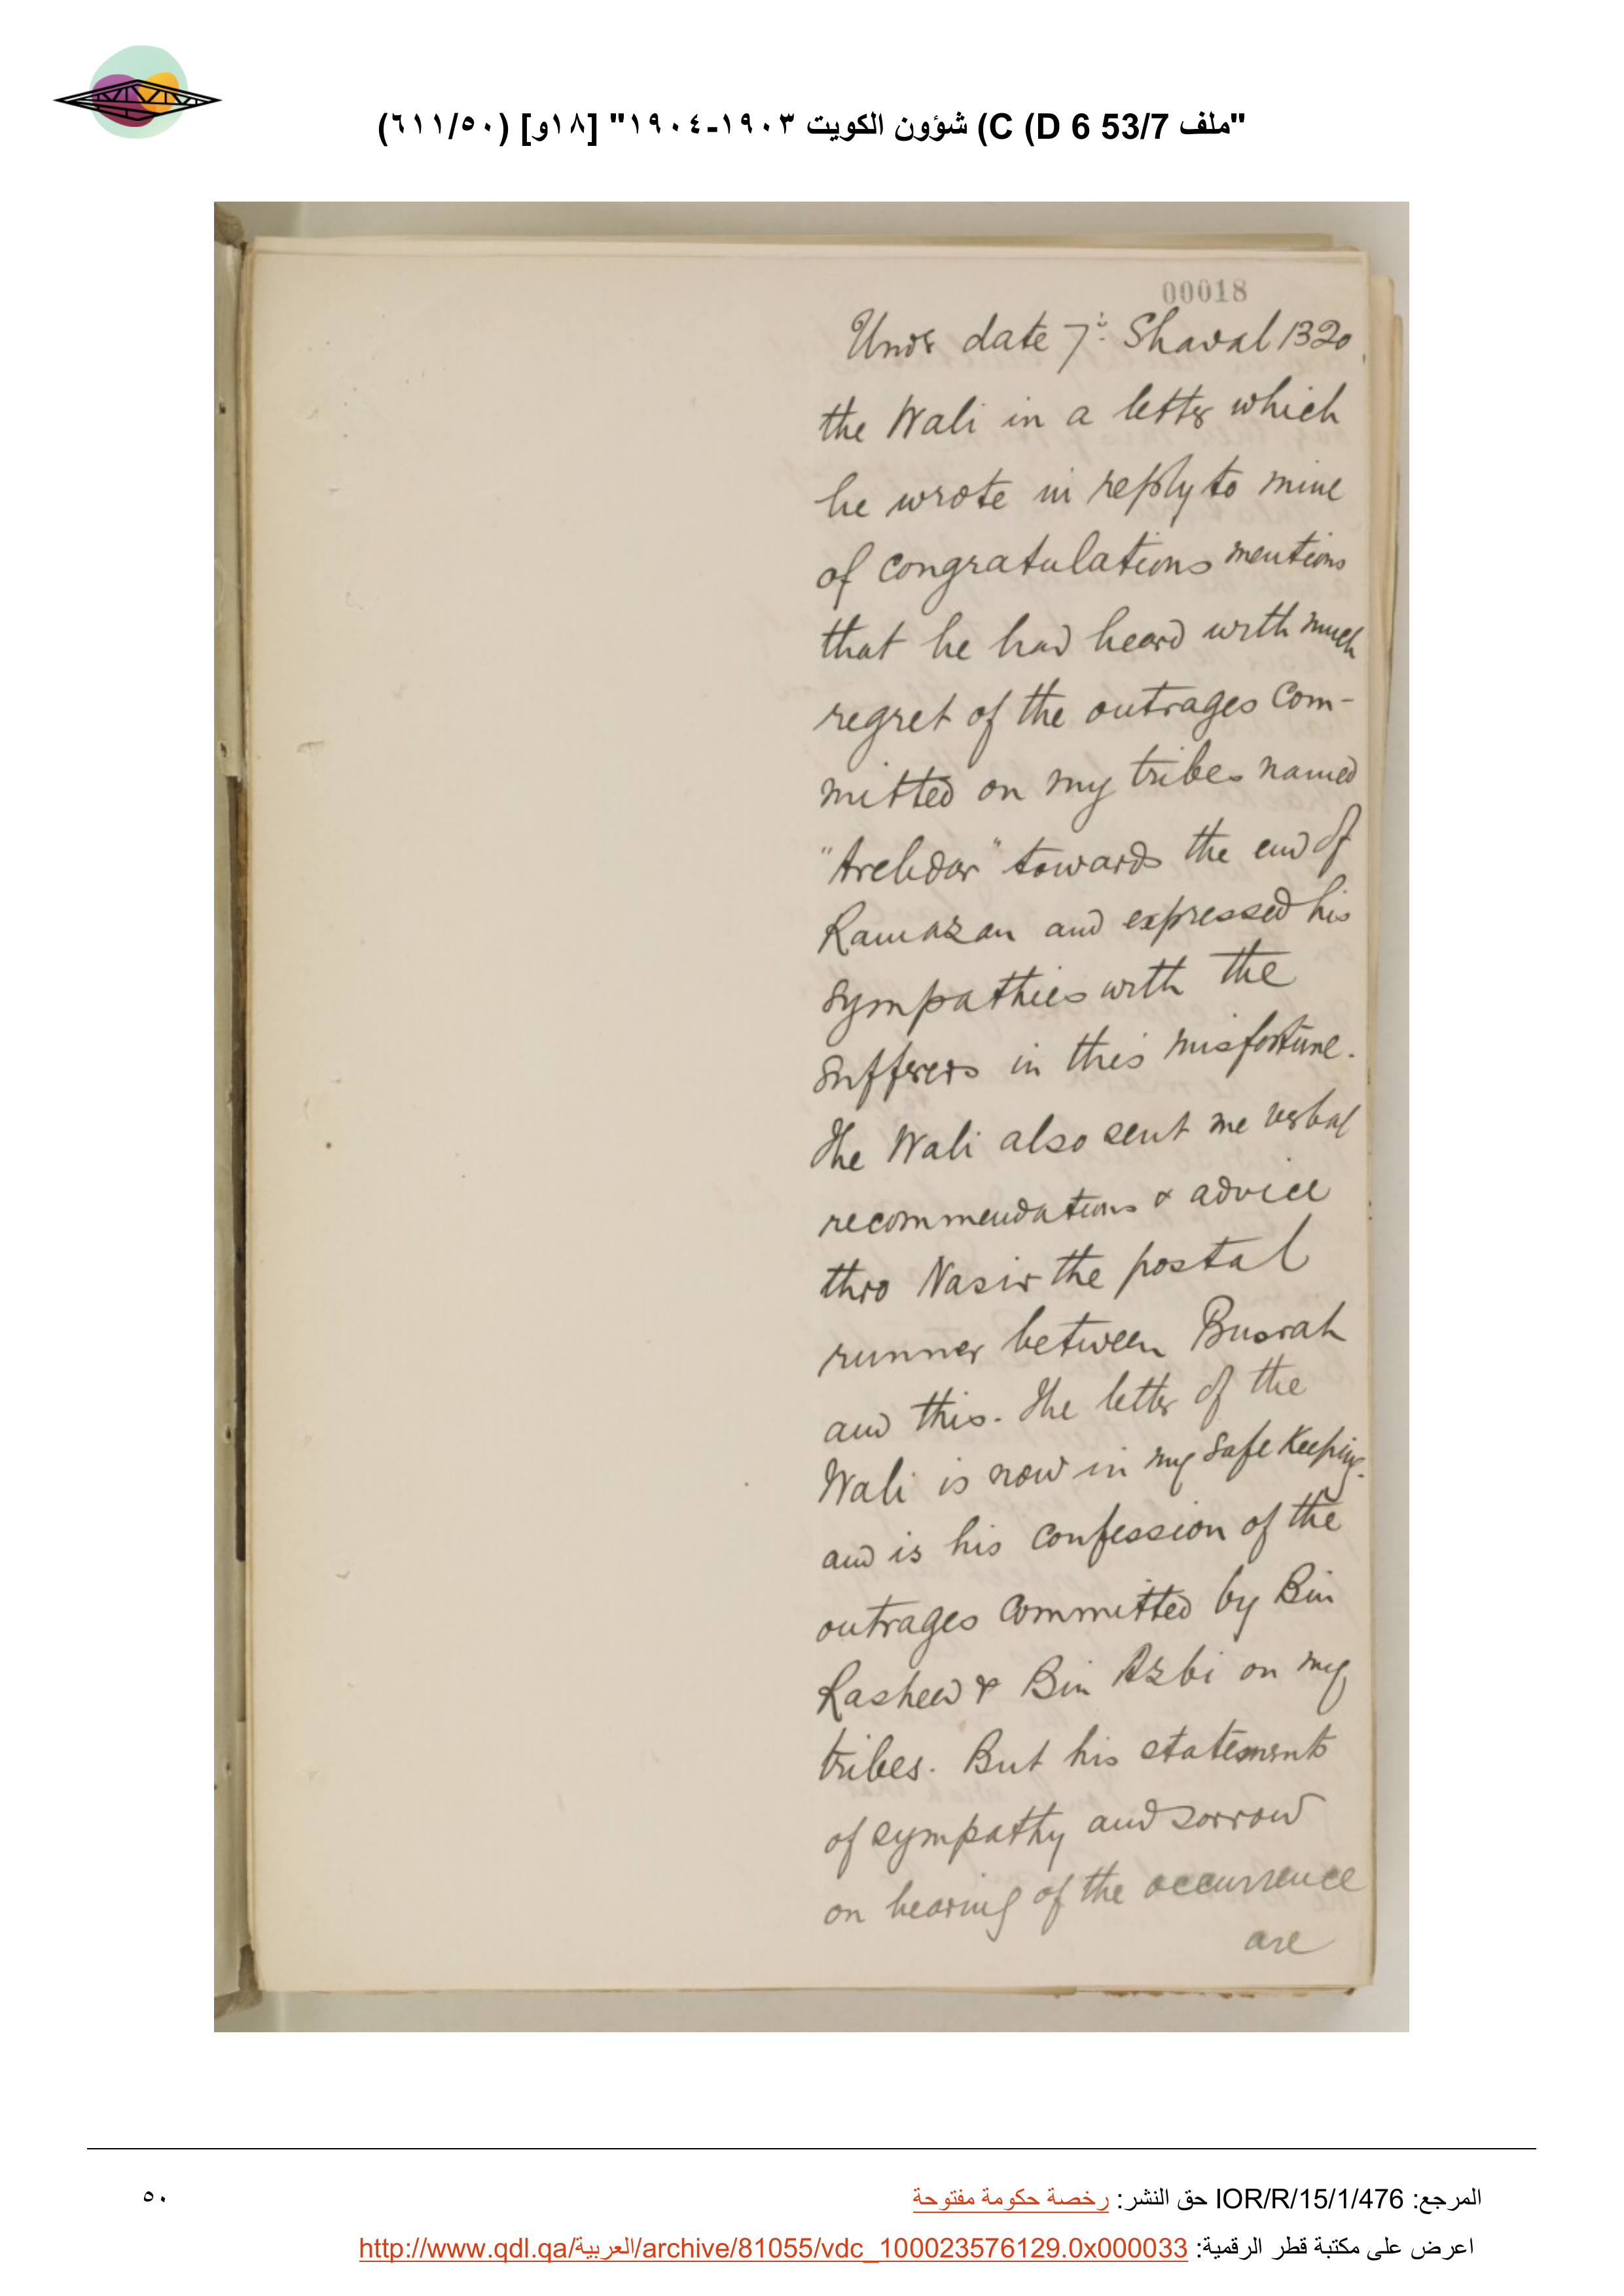 "ملف 53/7 D 6) C) شؤون الكويت ١٩٠٣-١٩٠٤" [١٨و] (٦١١/٥٠)
00018
Undr date 7th Shaval 1320
the Wali in a letter which
he wrote in reply to mine
of congratulations mentions
that he had heard with much
regret of the outrages com-
mitted on my tribes named
"Arehdar" towards the end of
Ramazan and expressed his
sympathies with the
sufferers in this misfortune.
The Wali also sent me verbal
recommendations & advice
thro Nasir the postal
runner between Busrah
and this. The letter of the
Wali is now in my safe keeping.
and is his confession of the
outrages committed by Bin
Rasheed & Bin Azbi on my
tribes. But his statements
of sympathy and sorrow
on hearing of the occurrence
are
المرجع: IOR/R/15/1/476 حق النشر: رخصة حكومة مفتوحة
٥٠
اعرض على مكتبة قطر الرقمية: http://www.qdl.qa/العربية/archive/81055/vdc_100023576129.0x000033